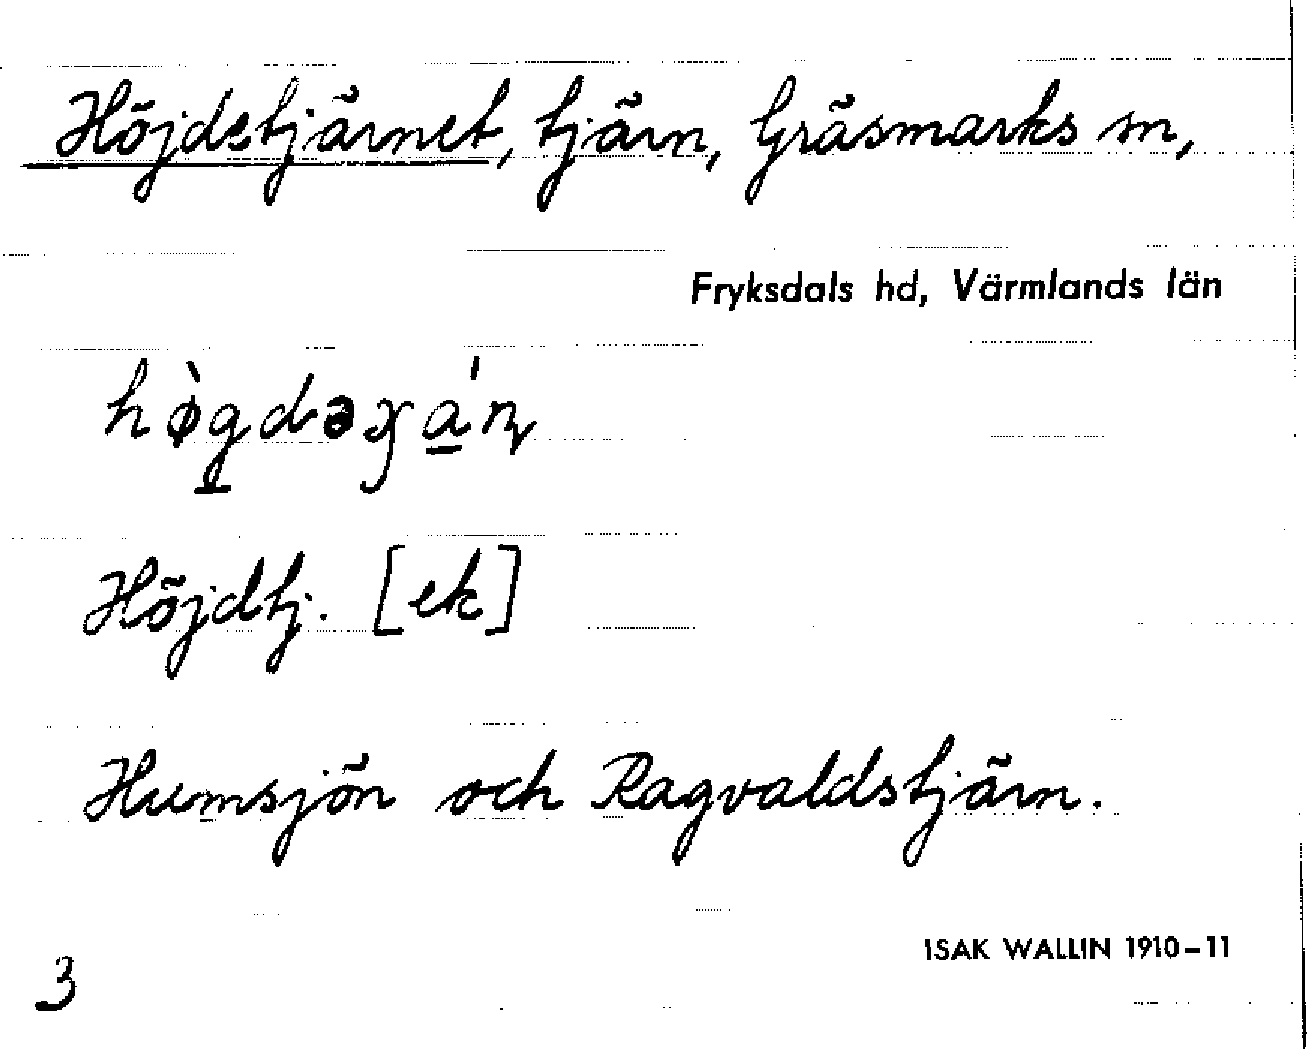 Höjdetjärnet, tjärn, Gräsmarks sn,
Fryksdals hd, Värmlands län
Höjdtj. [ek]
Humsjön och Ragvaldstjärn.
ISAK WALLIN 1910-11
3